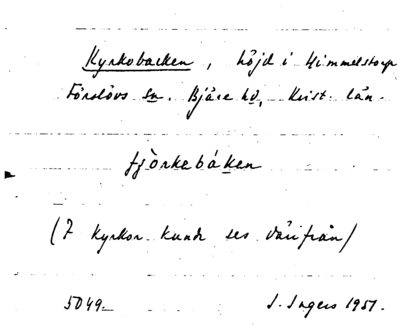 Kyrkobacken, höjd i Himmelstorp
Förslövs sn. Bjäre hd, Krist. län.
fjörkebáken
(7 kyrkor kunde ses därifrån)
5049. I. Ingers 1951.